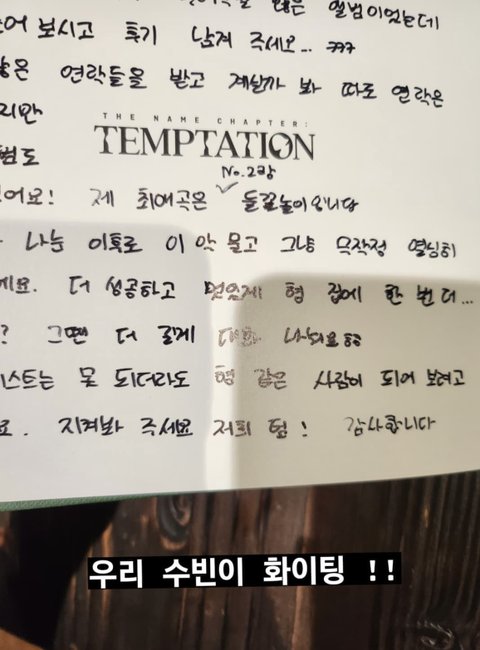 않은 앨범이었는데
어 보시고 후기 남겨 주세요... ㅋㅋㅋ
많은 연락들을 받고 계실까 봐 따로 연락은
지만
THE NAME CHAPTER:
TEMPTATION
범도
No.2랑
어요! 제 최애곡은 ✓ 들꽃놀이입니다
나눈 이후로 이 악 물고 그냥 무작정 열심히
에요. 더 성공하고 멋있게 형 집에 한 번 더...
? 그땐 더 길게 대화 나눠요ㅎㅎ
티스트는 못 되더라도 형 같은 사람이 되어 보려고
요. 지켜봐 주세요 저희 팀! 감사합니다
우리 수빈이 화이팅 !!